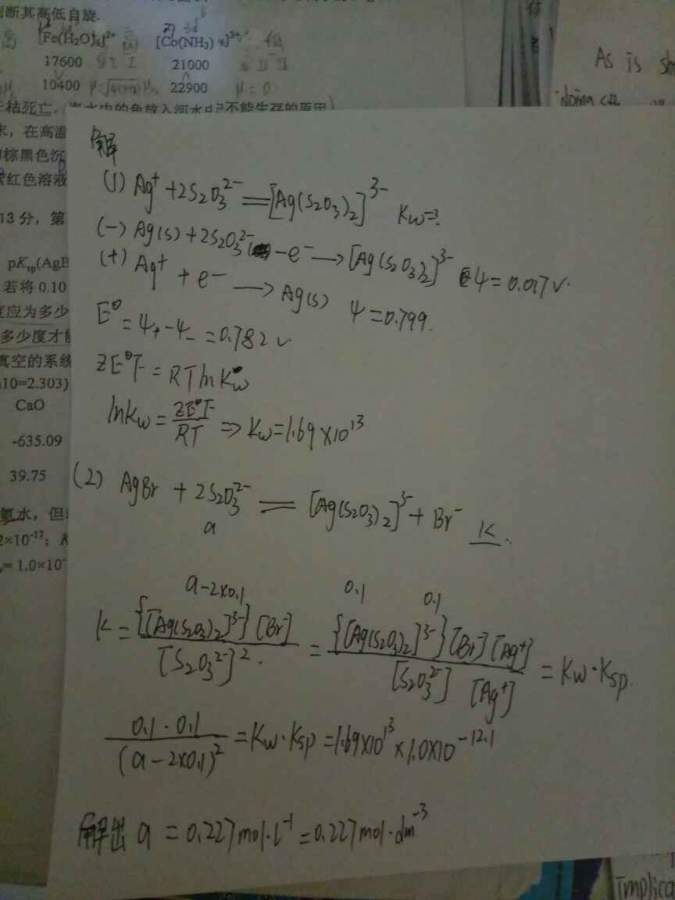 判断其高低自旋.
[Fe(H₂O)₆]²⁺ [Co(NH₃)₆]³⁺
17600 21000
10400 22900 μ=0
As is sh
在高温
棕黑色沉
红色溶液
13 分，第
pK
若将 0.10
度应为多少
多少度才能
真空的系统
10=2.303)
CaO
-635.09
39.75
氨水，但
2×10⁻¹²；
= 1.0×10
解
(1) Ag⁺+2S₂O₃²⁻ = [Ag(S₂O₃)₂]³⁻ Kw=?
(-) Ag(s)+2S₂O₃²⁻ -e⁻ → [Ag(S₂O₃)₂]³⁻ φ=0.017V.
(+) Ag⁺ + e⁻ → Ag(s) φ=0.799.
E⁰=φ₊-φ₋=0.782V
ZE⁰F=RTlnKw
lnKw=ZE⁰F/RT ⇒ Kw=1.69×10¹³
(2) AgBr + 2S₂O₃²⁻ = [Ag(S₂O₃)₂]³⁻ + Br⁻ K.
a
a-2×0.1 0.1 0.1
K={[Ag(S₂O₃)₂]³⁻}[Br⁻]/[S₂O₃²⁻]² = {[Ag(S₂O₃)₂]³⁻}[Br⁻][Ag⁺]/[S₂O₃²⁻][Ag⁺] = Kw·Ksp.
0.1·0.1/(a-2×0.1)² = Kw·Ksp=1.69×10¹³×1.0×10⁻¹²·¹
解出 a = 0.227mol·L⁻¹=0.227mol·dm⁻³
Implica